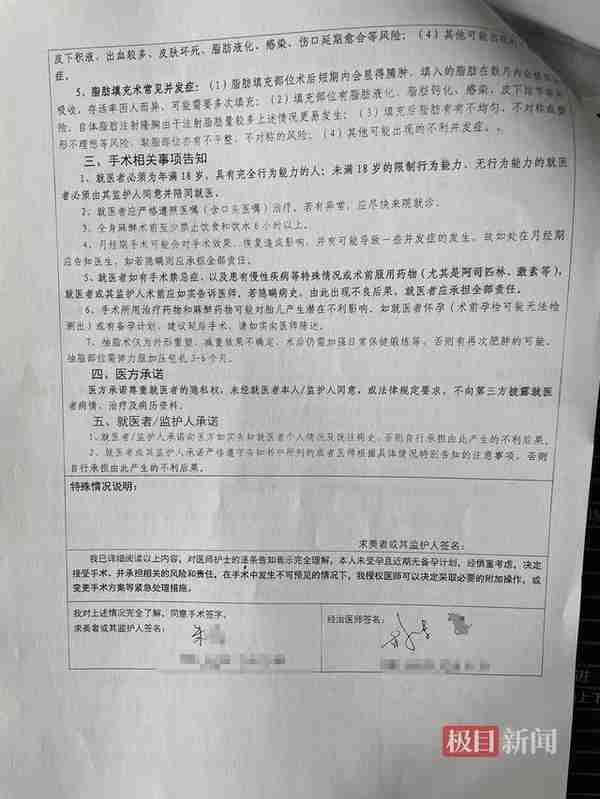 皮下积液、出血较多、皮肤坏死、脂肪液化、感染、伤口延期愈合等风险；（4）其他可能出现的
症。
5、脂肪填充术常见并发症：（1）脂肪填充部位术后短期内会显得臃肿，填入的脂肪在数月内会
吸收，存活率因人而异，可能需要多次填充；（2）填充部位有脂肪液化、脂肪钙化、感染、皮下结节等
险，自体脂肪注射隆胸由于注射脂肪量较多上述情况更易发生；（3）填充后脂肪有有不均匀、不对称或整
形不理想等风险，取脂部位亦有不平整、不对称的风险；（4）其他可能出现的不利并发症。
三、手术相关事项告知
1、就医者必须为年满 18 岁，具有完全行为能力的人；未满 18 岁的限制行为能力、无行为能力的就医
者必须由其监护人同意并陪同就医。
2、就医者应严格遵照医嘱（含口头医嘱）治疗，若有异常，应尽快来院就诊。
3、全身麻醉术前至少禁止饮食和饮水 6 小时以上。
4、月经期手术可能会对手术效果、恢复造成影响，并有可能导致一些并发症的发生。故如处在月经期
应告知医生，如若隐瞒则应承担全部责任。
5、就医者如有手术禁忌症，以及患有慢性疾病等特殊情况或术前服用药物（尤其是阿司匹林、激素等），
就医者或其监护人术前应如实告诉医师，若隐瞒病史，由此出现不良后果，就医者应承担全部责任。
6、手术所用治疗药物和麻醉药物可能对胎儿产生潜在不利影响，如就医者怀孕（术前孕检可能无法检
测出）或有备孕计划，建议延后手术，请如实向医师陈述。
7、抽脂术仅为外形重塑，减重效果不确定，术后仍需加强日常保健锻炼等，否则有再次肥胖的可能。
抽脂部位需弹力服加压包扎 3-6 个月。
四、医方承诺
医方承诺尊重就医者的隐私权，未经就医者本人/监护人同意，或法律规定要求，不向第三方披露就医
者病情、治疗及病历资料。
五、就医者/监护人承诺
1、就医者/监护人承诺向医方如实告知就医者个人情况及既往病史，否则自行承担由此产生的不利后果。
2、就医者或其监护人承诺严格遵守告知书中所列的或者医师根据具体情况特别告知的注意事项，否则
自行承担由此产生的不利后果。
特殊情况说明：
求美者或其监护人签名：
我已详细阅读以上内容，对医师护士的逐条告知表示完全理解，本人未受孕且近期无备孕计划，经慎重考虑，决定
接受手术，并承担相关的风险和责任，在手术中发生不可预见的情况下，我授权医师可以决定采取必要的附加操作，或
变更手术方案等紧急处理措施。
我对上述情况完全了解，同意手术签字。
求美者或其监护人签名：
朱
经治医师签名：
极目新闻